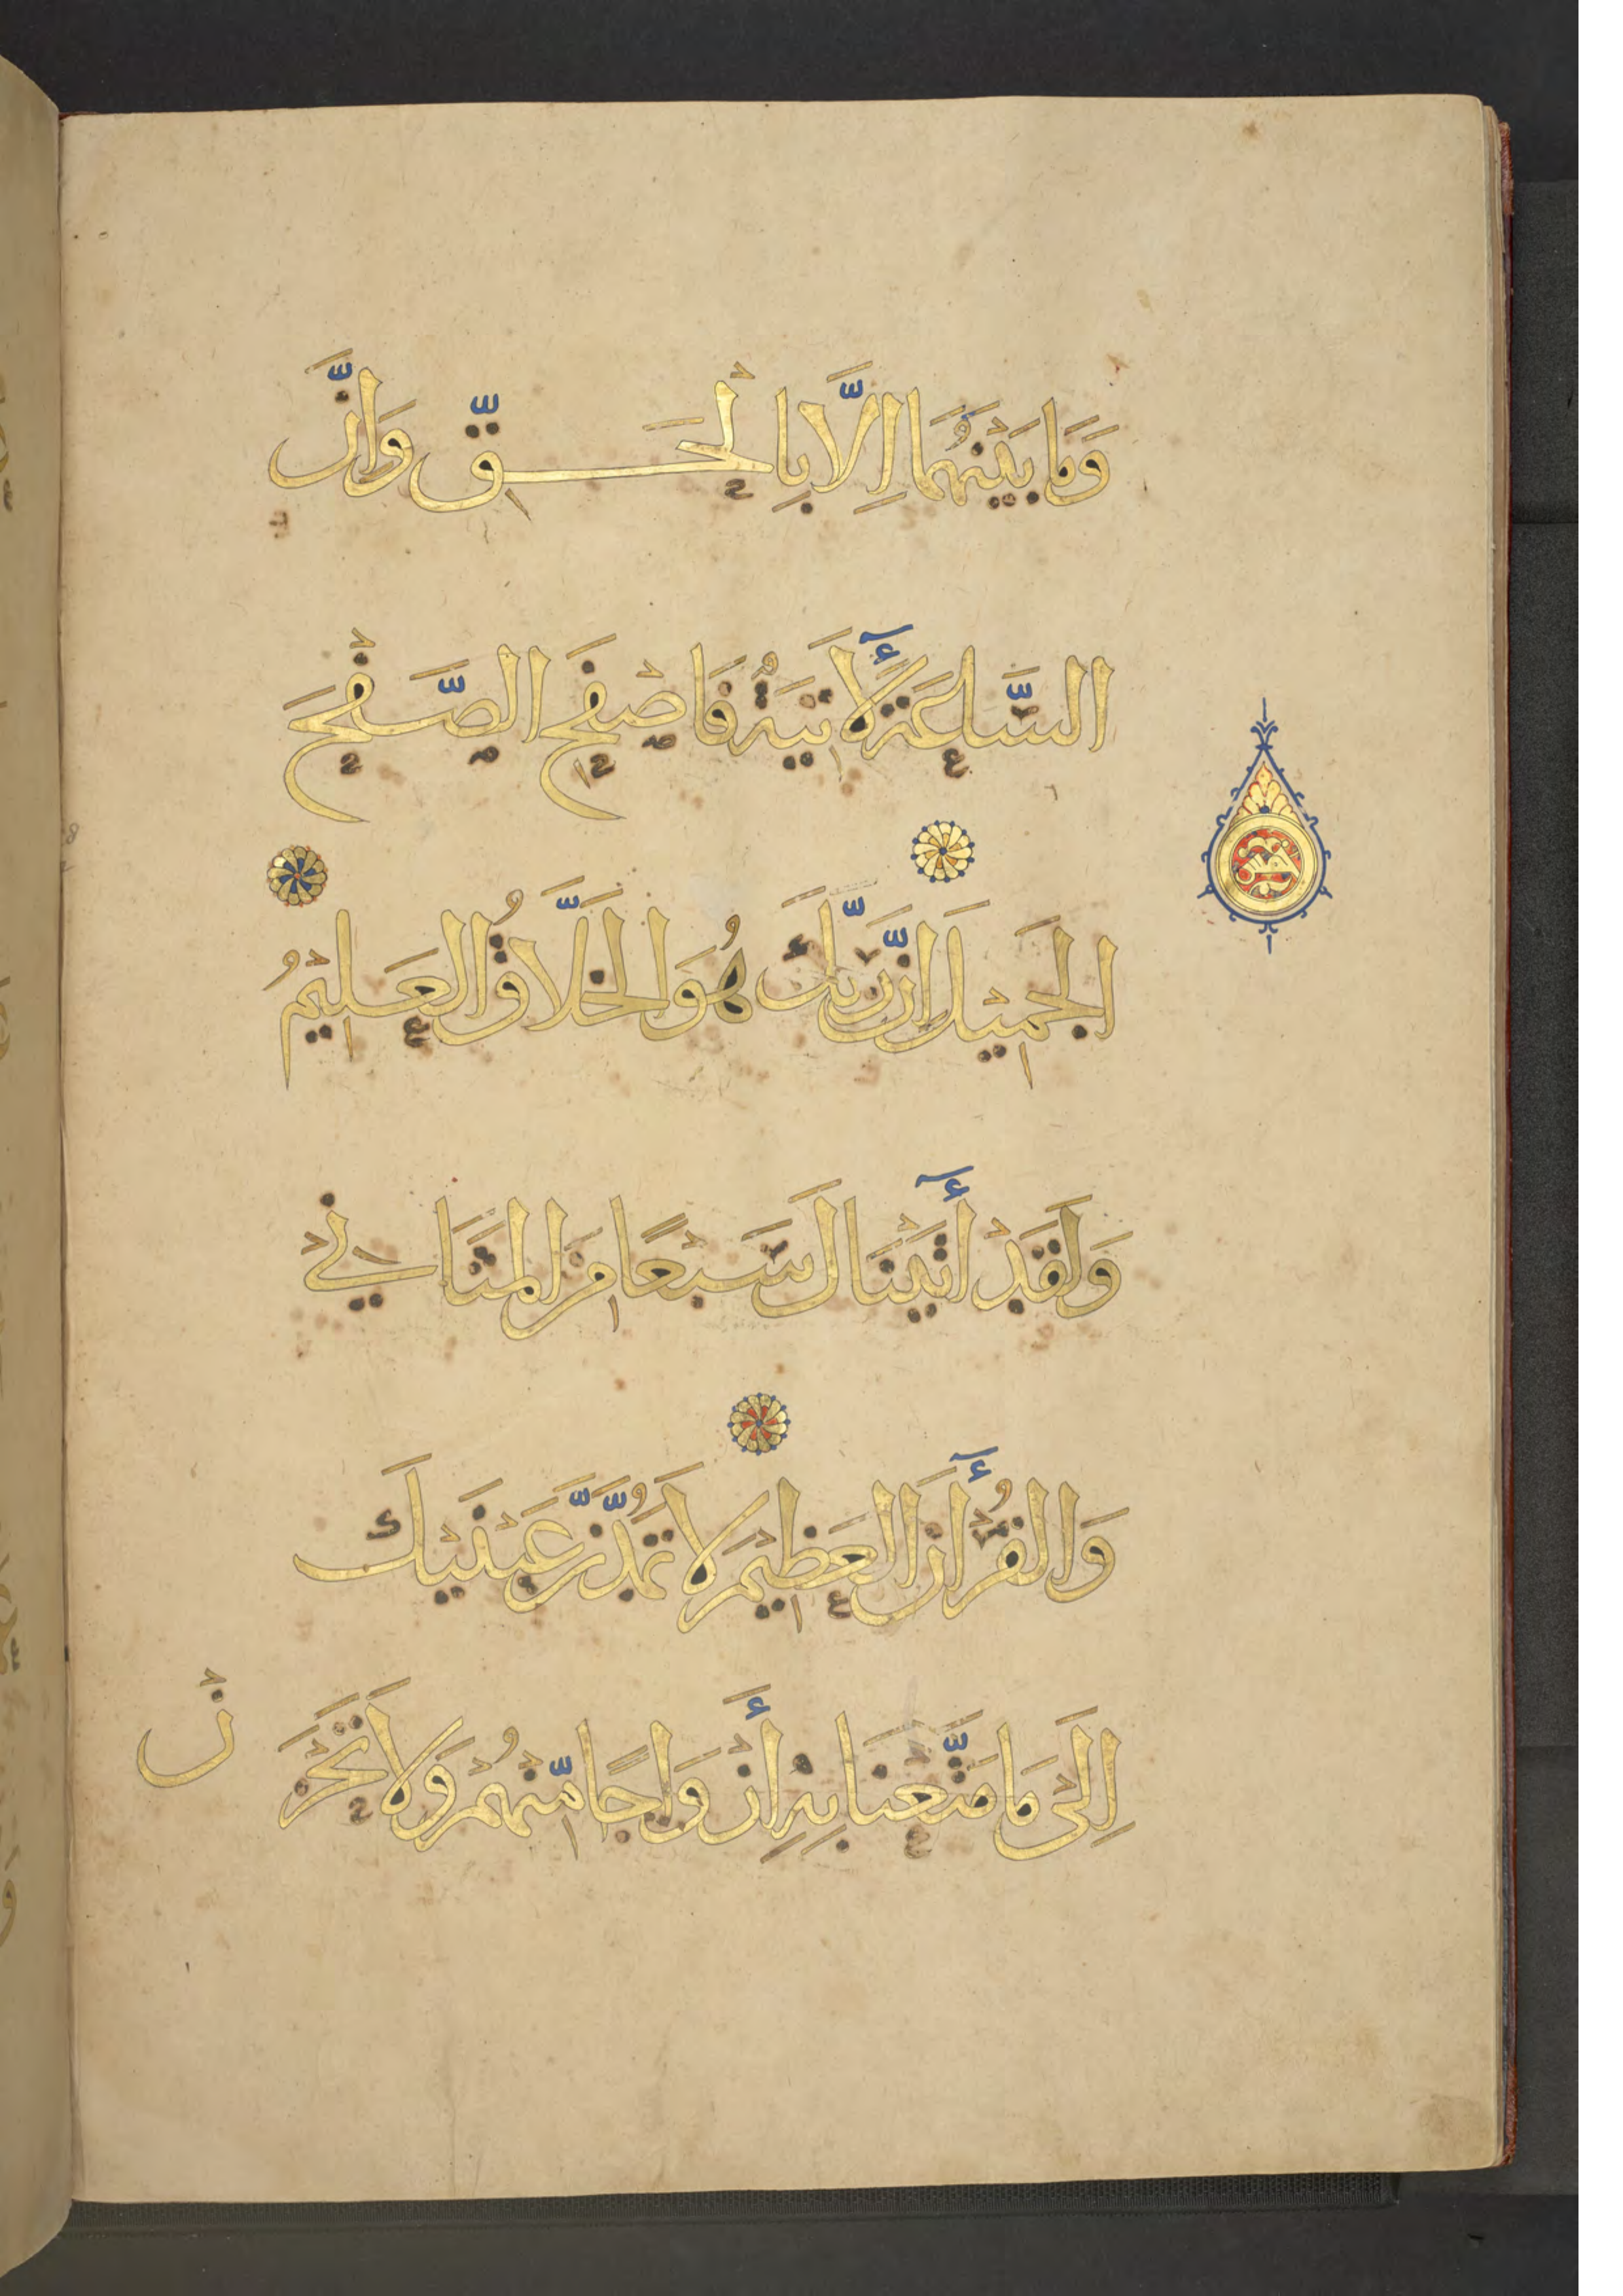 وَمَا بَيْنَهُمَا اِلَّا بِالْحَقِّ وَاِنَّ
السَّاعَةَ لَأٓتِيَةٌ فَاصْفَحِ الصَّفْحَ
الْجَمِيْلَ اِنَّ رَبَّكَ هُوَ الْخَلَّاقُ الْعَلِيْمُ
وَلَقَدْ أٓتَيْنَاكَ سَبْعًا مِنَ الْمَثَانِيْ
وَالْقُرْأٓنَ الْعَظِيْمَ لَا تَمُدَّنَّ عَيْنَيْكَ
اِلَىٰ مَا مَتَّعْنَا بِهِ أَزْوَاجًا مِّنْهُمْ وَلَا تَحْزَنْ